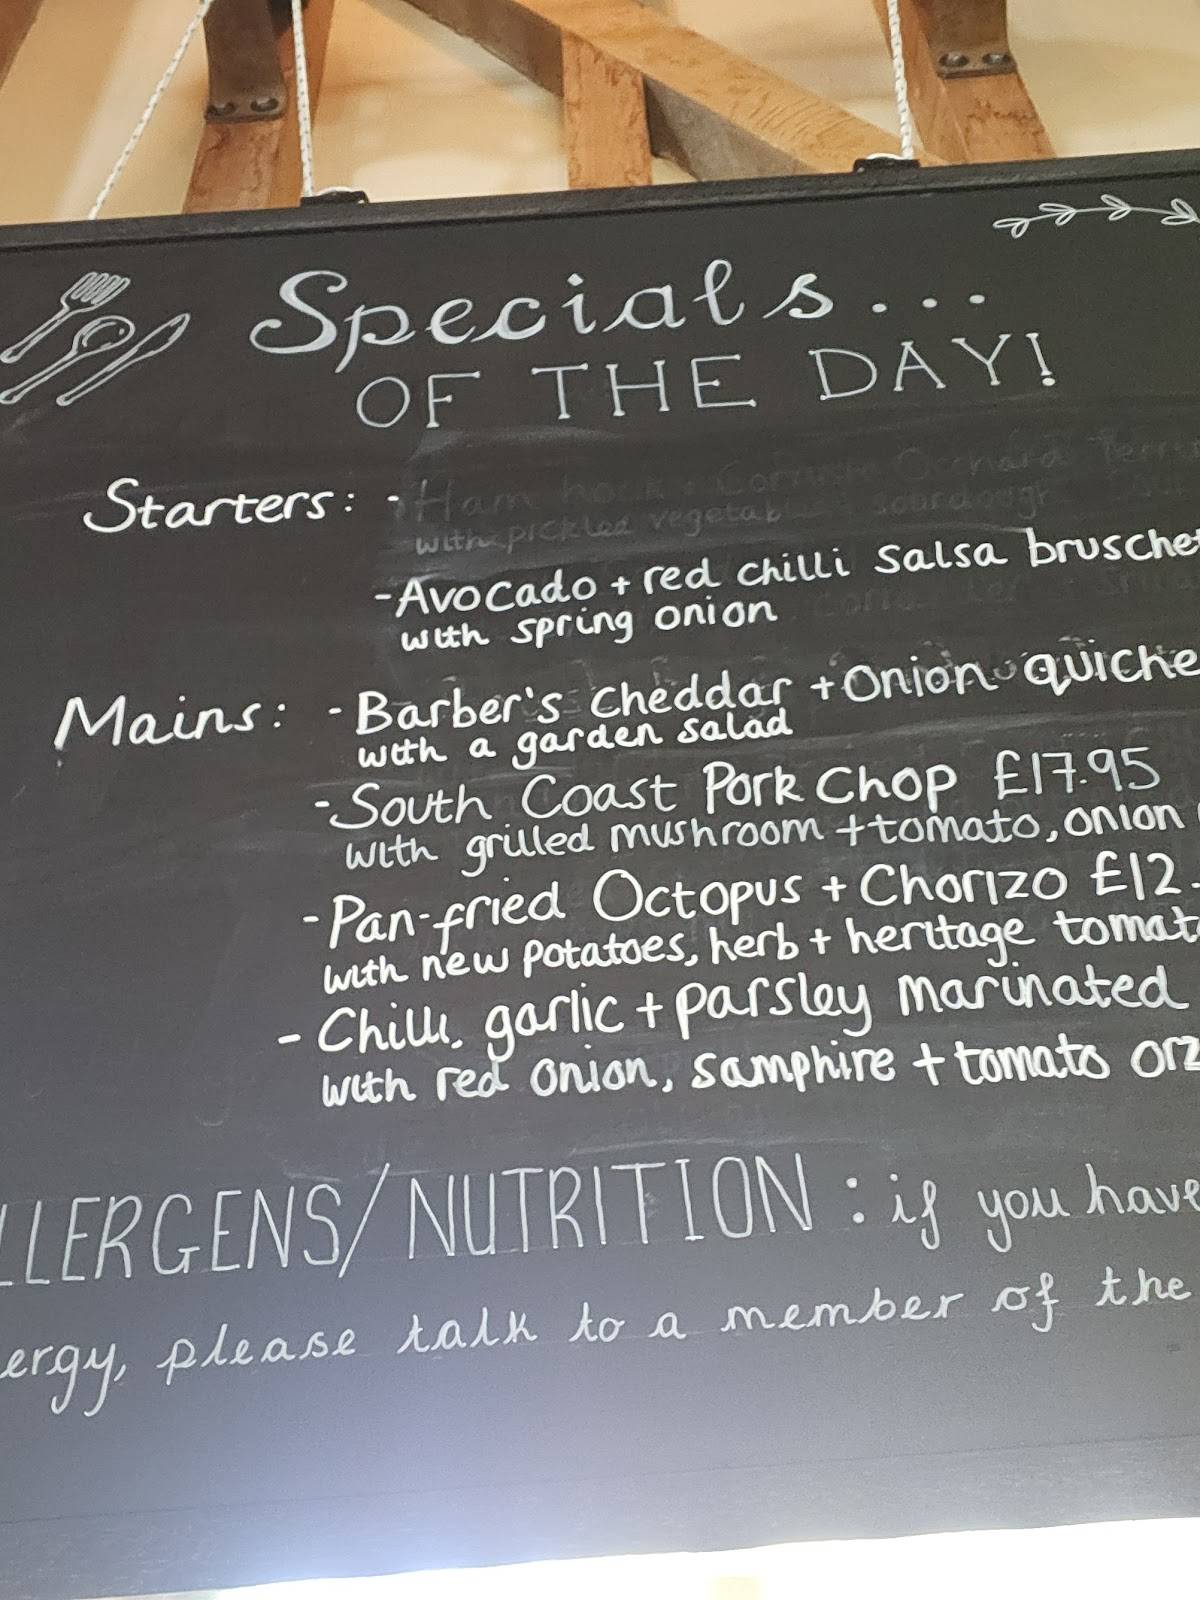 Specials...
OF THE DAY!
Starters: - Ham hock + Orchard
with pickled vegetable sourdough
- Avocado + red chilli salsa brusche
with spring onion
Mains: - Barber's cheddar + Onion quiche
with a garden salad
- South Coast Pork Chop £17.95
with grilled mushroom + tomato, onion
- Pan-fried Octopus + Chorizo £12.
with new potatoes, herb + heritage tomat
- Chilli, garlic + parsley marinated
with red onion, samphire + tomato orz
LLERGENS/NUTRITION: if you have
ergy, please talk to a member of the